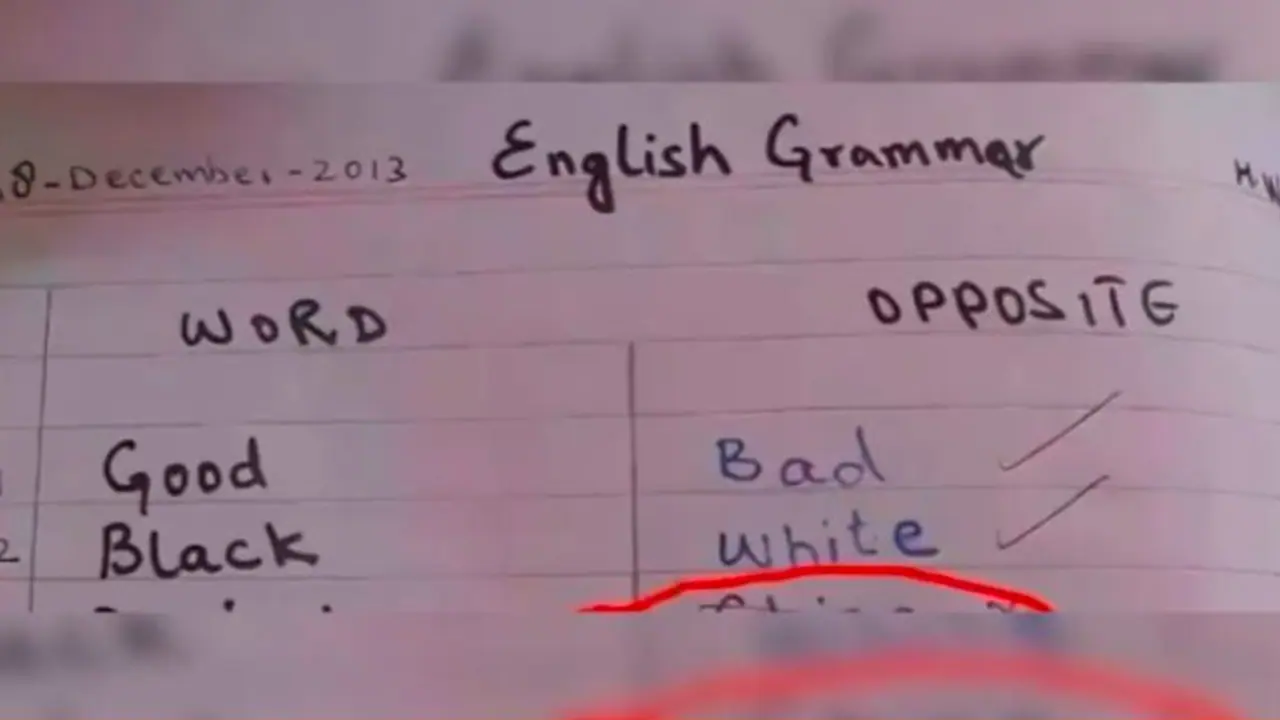 8-December-2013 English Grammar
WORD OPPOSITE
Good Bad
2 Black White